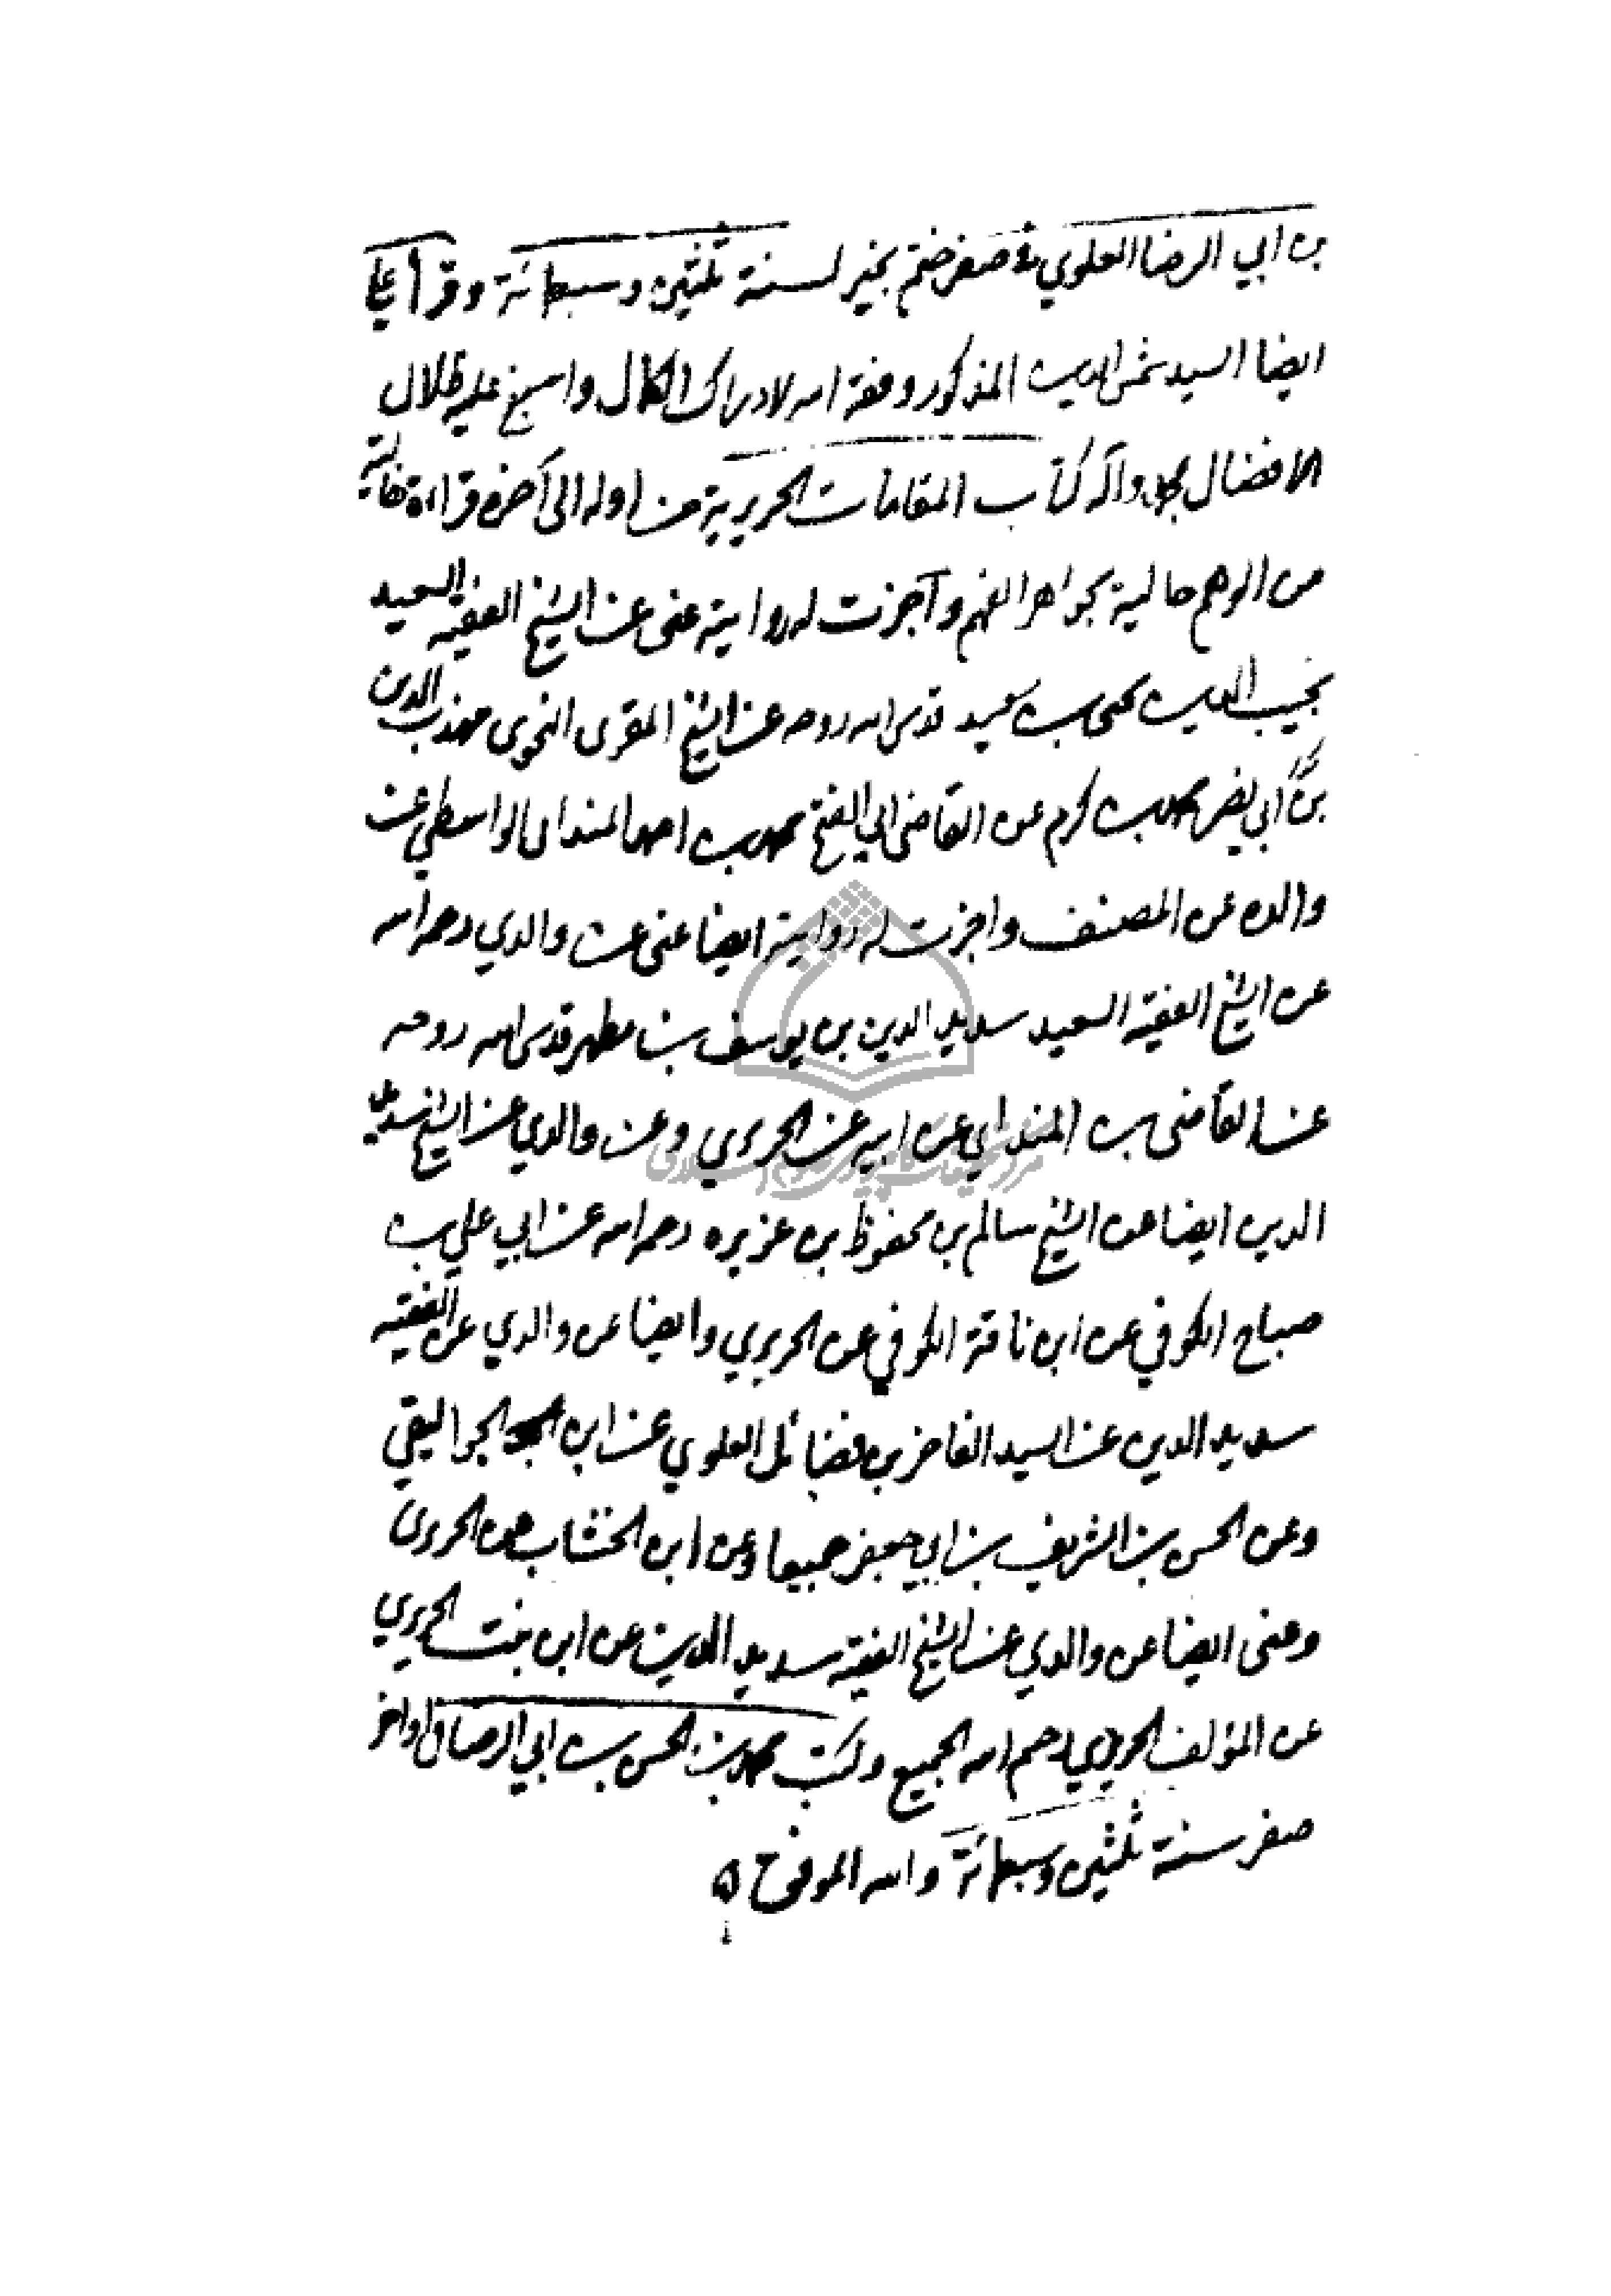 بن ابي الرضا العلوي في صفر ختم بخير لسنة ثلثين وسبعمائة وقرأ علي
ايضا السيد شمس الدين المذكور وفقه الله لادراك الكمال واسبغ عليه ظلال
الافضال بمحمد وآله كتاب المقامات الحريرية من اوله الى آخره قراءة خالية
من الوهم حالية بجواهر الفهم وآجزت له روايته عنى عن الشيخ الفقيه السعيد
نجيب الدين يحيى بن سعيد قدس الله روحه عن الشيخ المقرى النحوى مهذب الدين
بن ابي نصر محمد بن كرم عن القاضى ابي الفتح محمد بن احمد المنداى الواسطي عن
والده عن المصنف واجزت له روايته ايضا عنى عن والدي رحمه الله
عن الشيخ الفقيه السعيد سديد الدين بن يوسف بن مطهر قدس الله روحه
عن القاضى بن المنداي عن ابيه عن الحريري وعن والدي عن الشيخ سديد
الدين ايضا عن الشيخ سالم بن محفوظ بن عزيزه رحمه الله عن ابي علي بن
صباح الكوفي عن ابن ناقة الكوفي عن الحريري وايضا عن والدي عن الفقيه
سديد الدين عن السيد الفاخر بن فضائل العلوي عن ابن الجواليقي
وعن الحسن بن الشريف بن ابي جعفر جميعا وعن ابن الخشاب عن الحريرى
وعنى ايضا عن والدي عن الشيخ الفقيه سديد الدين عن ابن بنت الحريري
عن المؤلف الحريري رحم الله الجميع وكتب محمد بن الحسن بن ابي الرضا في اواخر
صفر سنة ثلثين وسبعمائة والله الموفق